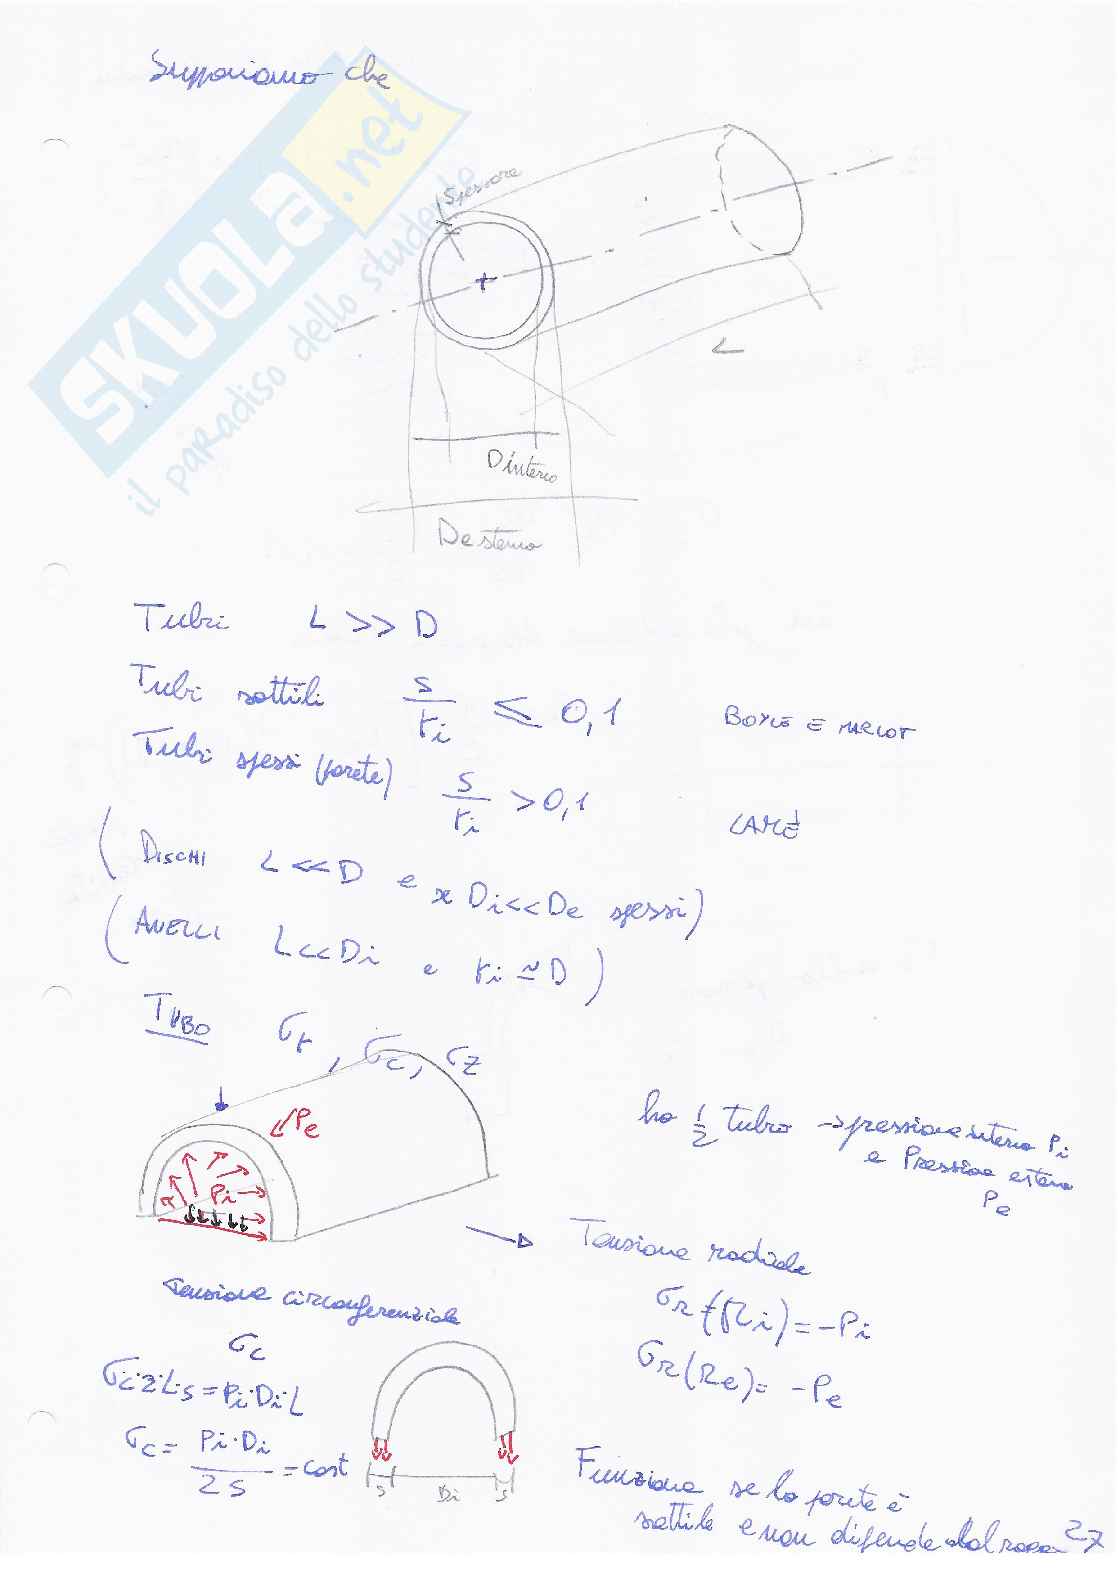 Supponiamo che
SKUOLA.net
il paradiso dello studente
Spessore
L
D interno
D esterno
Tubi L >> D
Tubi sottili s/ri ≤ 0,1 BOYLE E MARIOT
Tubi spessi (parete) s/ri > 0,1 LAMÈ
(DISCHI L<<D e se Di<<De spessi)
(ANELLI L<<Di e ri ≃ D)
TUBO σr, σc, σz
Pe
Pi
ho 1/2 tubo → pressione interna Pi
e Pressione esterna
Pe
Tensione radiale
σr(ri) = -Pi
σr(Re) = -Pe
Tensione circonferenziale
σc
σc·2·L·s = Pi·Di·L
σc = Pi·Di/2s = cost
s Di s
Funziona se la parete è
sottile e non dipende dal
27